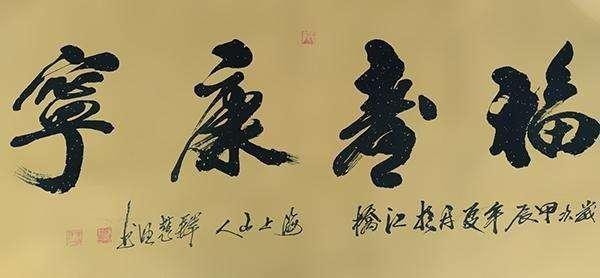 福壽康寧
歲次甲辰年夏月於江橋
海上山人